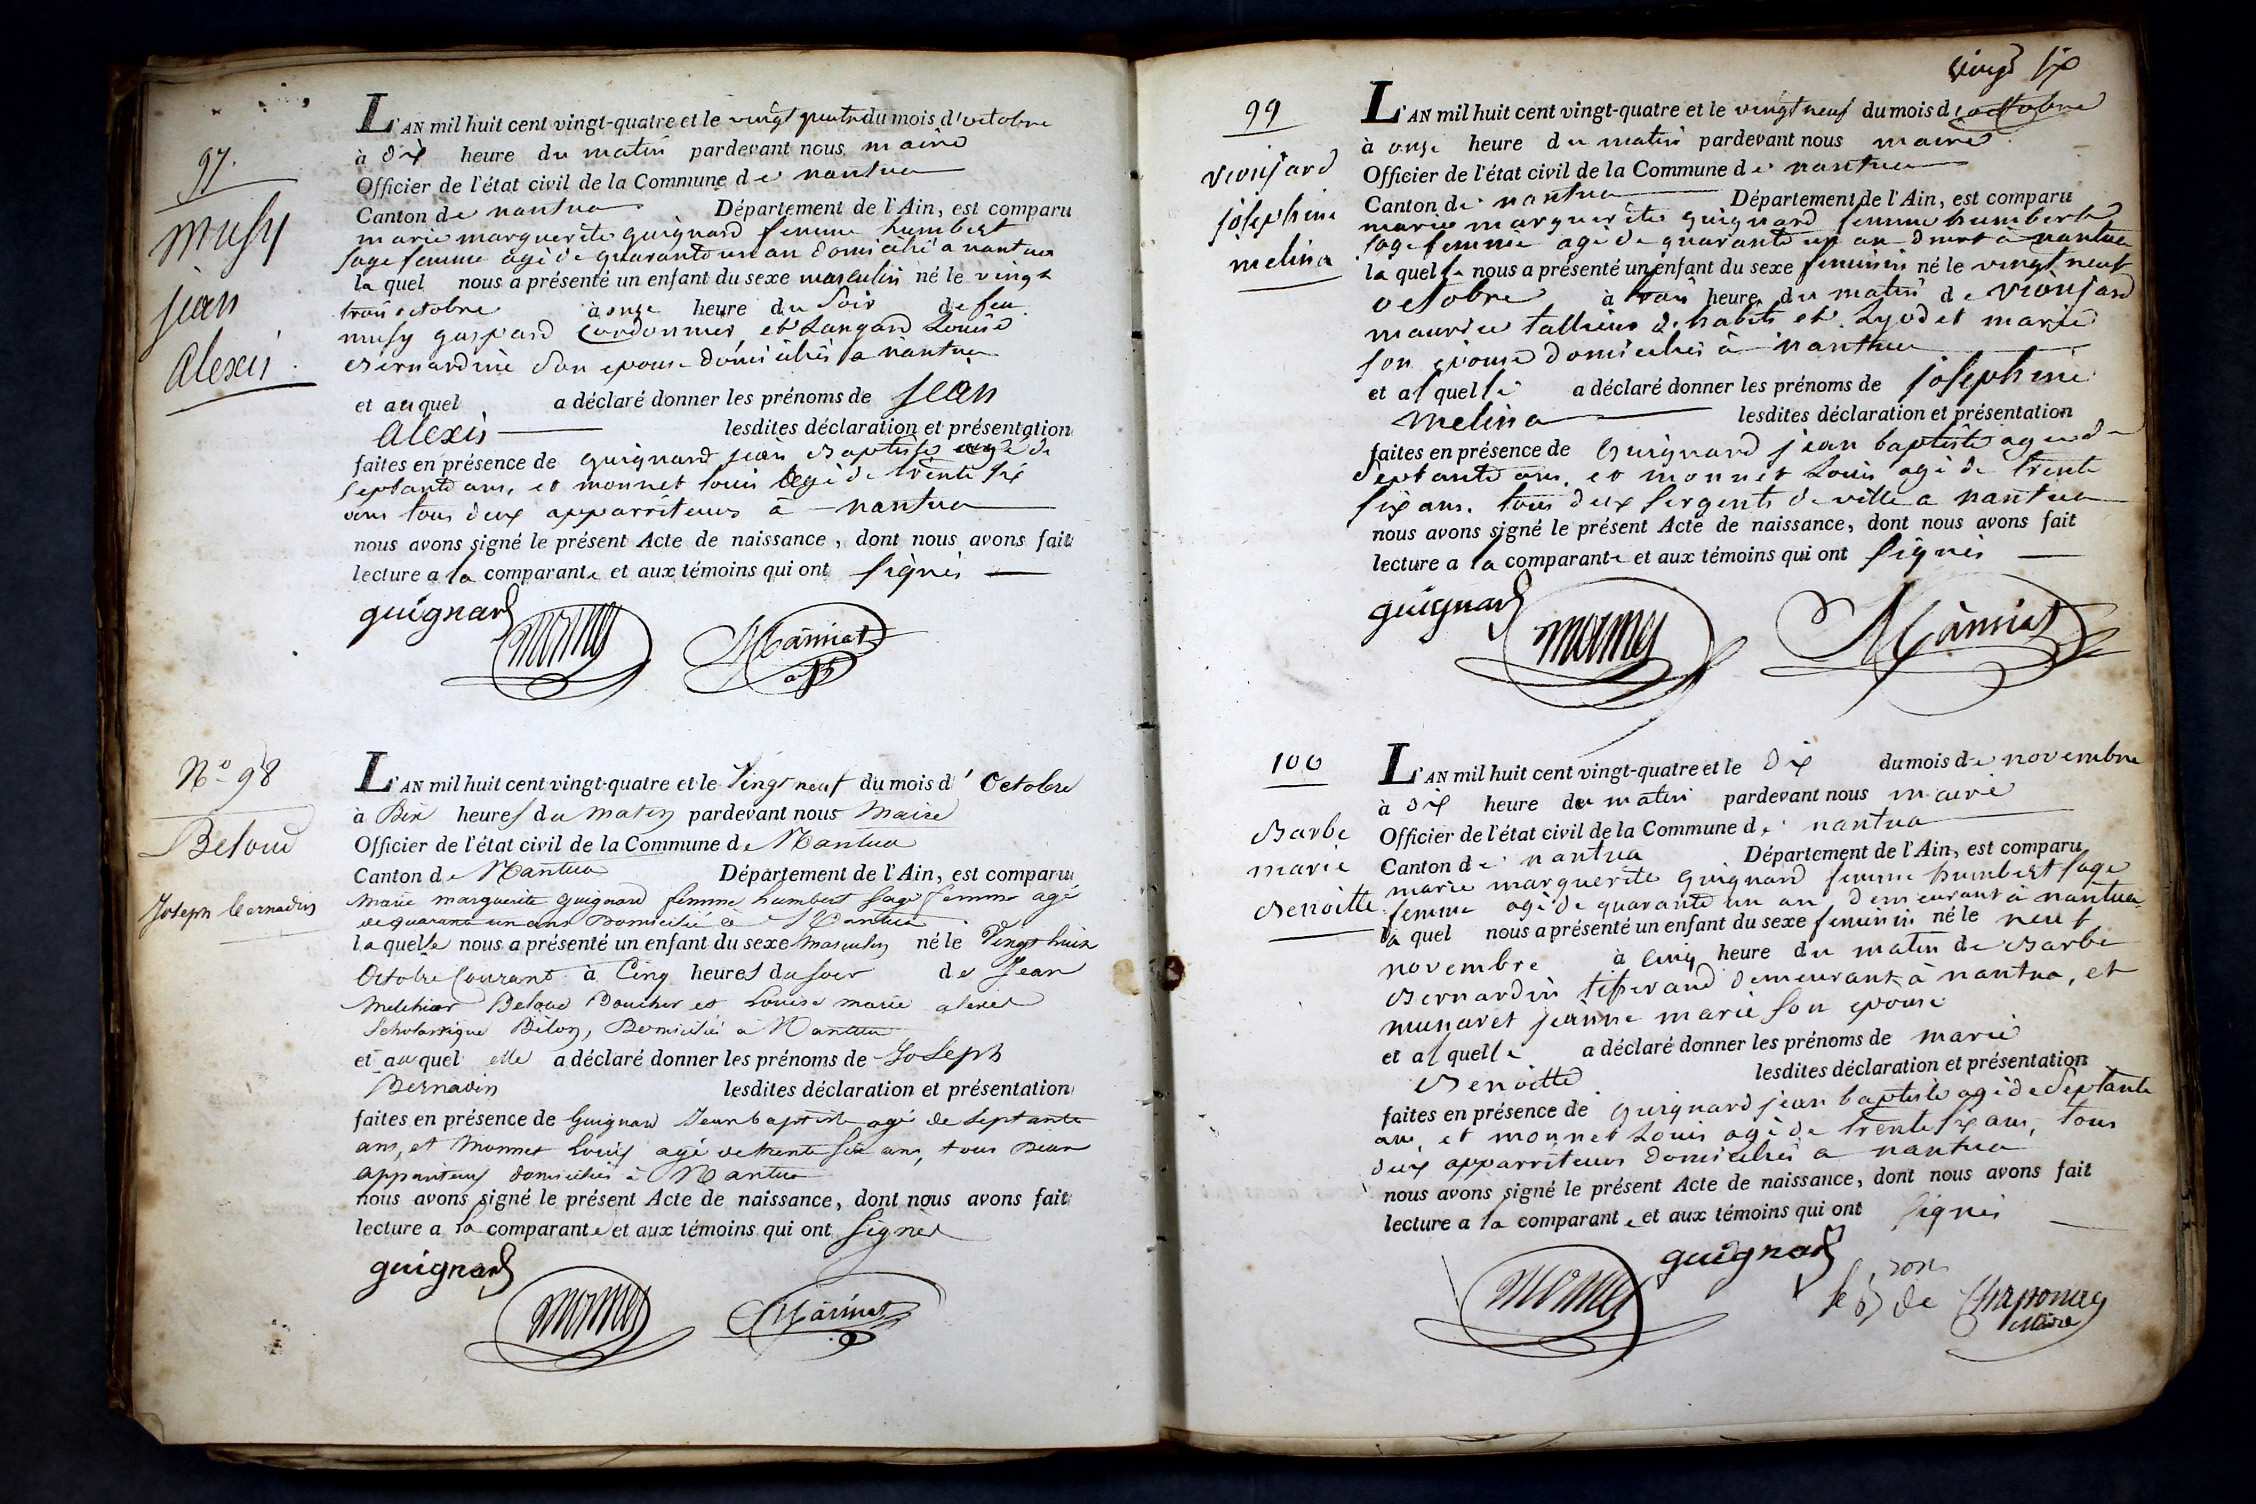 97.
Musy
jean
alexis
L'AN mil huit cent vingt-quatre et le vingt quatre du mois d'octobre
à dix heure du matin pardevant nous maire
Officier de l'état civil de la Commune de nantua
Canton de nantua Département de l'Ain, est comparu
marie marguerite guignard femme humbert
sage femme agé de quarante un an domicilié a nantua
la quel nous a présenté un enfant du sexe masculin né le vingt
trois octobre à onze heure du soir de feu
musy gaspard Cordonnier, et Langard Louise
Bernardine son epouse domiciliés a nantua
et au quel a déclaré donner les prénoms de jean
alexis lesdites déclaration et présentation
faites en présence de guignard jean Baptiste agé de
septante ans, et monnet louis agé de trente six
ans tous deux apparriteurs à nantua
nous avons signé le présent Acte de naissance, dont nous avons fait
lecture a la comparante et aux témoins qui ont signés
guignard monnet
N.º 98
Beloud
Joseph bernadin
L'AN mil huit cent vingt-quatre et le Vingt neuf du mois d'Octobre
à Dix heures du matin pardevant nous Maire
Officier de l'état civil de la Commune de Nantua
Canton de Nantua Département de l'Ain, est comparu
Marie marguerite guignard femme humbert sage femme agé
de quarante un ans Domicilié à Nantua
la quelle nous a présenté un enfant du sexe Masculin né le Vingt huit
Octobre Courant à Cinq heures du soir de Jean
Melchior Beloud Boucher et Louise marie alexis
Scholastique Bilon, Domiciliés à Nantua
et au quel elle a déclaré donner les prénoms de Joseph
Bernadin lesdites déclaration et présentation
faites en présence de Guignard Jean baptiste agé de Septante
ans, et Monnet Louis agé de trente six ans, tous Deux
appariteurs domiciliés à Nantua
nous avons signé le présent Acte de naissance, dont nous avons fait
lecture a la comparante et aux témoins qui ont signés
guignard monnet
vingt six
99
vionjard
josephine
melina
L'AN mil huit cent vingt-quatre et le vingt neuf du mois d'octobre
à onze heure du matin pardevant nous maire
Officier de l'état civil de la Commune de nantua
Canton de nantua Département de l'Ain, est comparu
marie marguerite guignard femme humbert
sage femme agé de quarante un an dmrt à nantua
la quelle nous a présenté un enfant du sexe feminin né le vingt neuf
octobre à trois heure du matin de vionjard
maurice tallieur d'habits et Lyodet marie
son epouse domiciliés à nantua
et a la quelle a déclaré donner les prénoms de josephine
melina lesdites déclaration et présentation
faites en présence de Guignard jean baptiste age de
septante ans, et monnet Louis agé de trente
six ans, tous deux sergents de ville a nantua
nous avons signé le présent Acte de naissance, dont nous avons fait
lecture a la comparante et aux témoins qui ont signés
guignard monnet
100
Barbe
marie
Benoitte
L'AN mil huit cent vingt-quatre et le dix du mois de novembre
à dix heure du matin pardevant nous maire
Officier de l'état civil de la Commune de nantua
Canton de nantua Département de l'Ain, est comparu
marie marguerite Guignard femme humbert sage
femme agé de quarante un an demeurant à nantua
la quel nous a présenté un enfant du sexe feminin né le neuf
novembre à cinq heure du matin de Barbe
Bernardin tisserand demeurant à nantua, et
munaret jeanne marie son epouse
et a la quelle a déclaré donner les prénoms de marie
Benoitte lesdites déclaration et présentation
faites en présence de Guignard jean baptiste agé de septante
ans, et monnet Louis agé de trente six ans, tous
deux apparriteurs domiciliés a nantua
nous avons signé le présent Acte de naissance, dont nous avons fait
lecture a la comparante et aux témoins qui ont signés
monnet guignard
le Bon de Chaponay
Maire